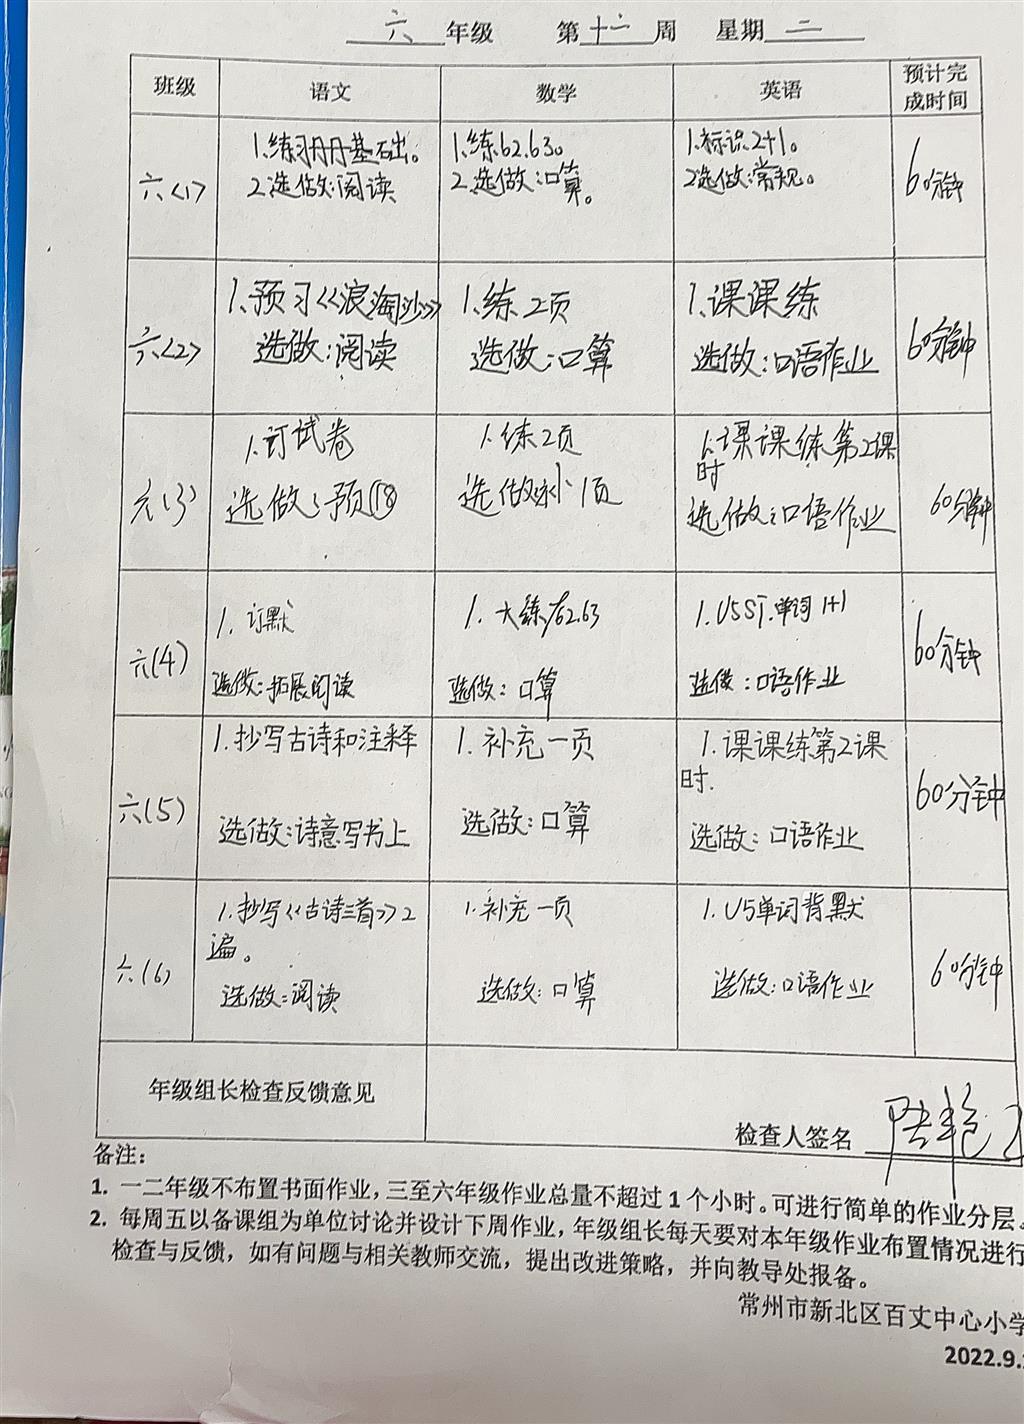 六年级 第十六周 星期二
班级 语文 数学 英语 预计完成时间
六<1> 1.练习册基础。 1.练62.63。 1.标识2+1。 60分钟
2.选做:阅读 2.选做:口算。 2选做:常规。
六<2> 1.预习《浪淘沙》 1.练2页 1.课课练 60分钟
选做:阅读 选做:口算 选做:口语作业
六(3) 1.订试卷 1.练2页 1.课课练第2课时 60分钟
选做:预⑱ 选做:补1页 选做:口语作业
六(4) 1.订默 1.大练P62.63 1.U5ST.单词1+1 60分钟
选做:拓展阅读 选做:口算 选做:口语作业
六(5) 1.抄写古诗和注释 1.补充一页 1.课课练第2课时. 60分钟
选做:诗意写书上 选做:口算 选做:口语作业
六(6) 1.抄写《古诗三首》2遍。 1.补充一页 1.U5单词背默 60分钟
选做:阅读 选做:口算 选做:口语作业
年级组长检查反馈意见
检查人签名
备注:
1. 一二年级不布置书面作业,三至六年级作业总量不超过1个小时。可进行简单的作业分层。
2. 每周五以备课组为单位讨论并设计下周作业,年级组长每天要对本年级作业布置情况进行
检查与反馈,如有问题与相关教师交流,提出改进策略,并向教导处报备。
常州市新北区百丈中心小学
2022.9.